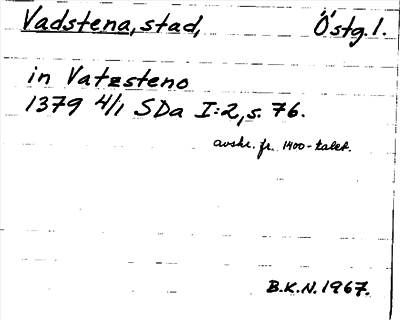 Vadstena, stad, Östg.l.
in Vatzsteno
1379 4/1 SDa I:2, s. 76.
avskr. fr. 1400-talet.
B.K.N. 1967.